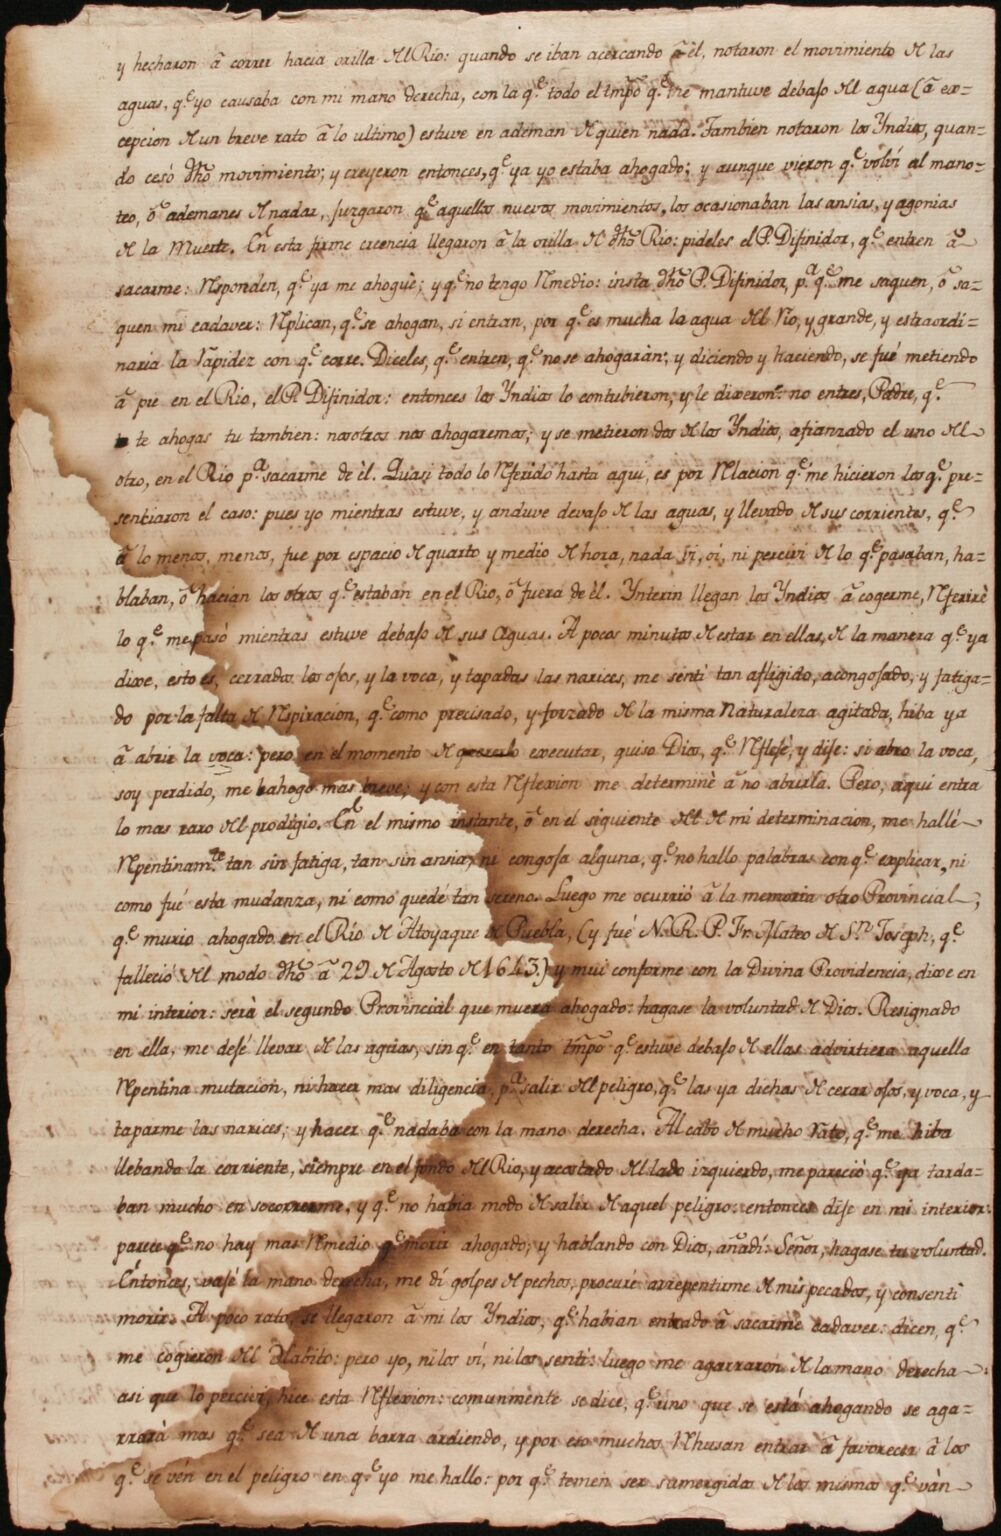 y hecharon â correr hacia orilla del Rio: quando se iban acercando â èl, notaron el movimiento de las
aguas, q.e yo causaba con mi mano derecha, con la q.e todo el tmpô q.e me mantuve debajo del agua (â ex=
cepcion de un breve rato â lo ultimo) estuve en ademan de quien nada. Tambien notaron los Yndios, quan=
do cesó dhô movimiento; y creyeron entonces, q.e ya yo estaba ahogado; y aunque vieron q.e volví al mano=
teo, ô ademanes de nadar, juzgaron q.e aquellos nuevos movimientos, los ocasionaban las ansias, y agonias
de la Muerte. En esta firme creencia llegaron â la orilla de dhô Rio: pideles el P. Difinidor, q.e entren â
sacarme: responden, q.e ya me ahoguè; y q.e no tengo remedio: insta dhô P. Difinidor, p.a q.e me saquen, ô sa=
quen mi cadaver: replican, q.e se ahogan, si entran, por q.e es mucha la agua del rio, y grande, y estraordi=
naria la rapidez con q.e corre. Diceles, q.e entren, q.e no se ahogaràn; y diciendo y haciendo, se fué metiendo
â pie en el Rio, el P. Difinidor: entonces los Yndios lo contubieron; y le dixeron: no entres, Padre, q.e
te ahogas tu tambien: nosotros nos ahogaremos; y se metieron dos de los Yndios, afianzado el uno del
otro, en el Rio p.a sacarme de èl. Quasi todo lo referido hasta aqui, es por relacion q.e me hicieron los q.e pre=
senciaron el caso: pues yo mientras estuve, y anduve devajo de las aguas, y llevado de sus corrientes, q.e
â lo menos, menos, fue por espacio de quarto y medio de hora, nada vi, oí, ni percivi de lo q.e pasaban, ha=
blaban, ô hacian los otros q.e estaban en el Rio, ô fuera de èl. Ynterin llegan los Yndios â cogerme, referirè
lo q.e me pasó mientras estuve debajo de sus aguas. A pocos minutos de estar en ellas, de la manera q.e ya
dixe, esto es, cerrados los ojos, y la voca, y tapadas las narices, me sentì tan afligido, acongojado, y fatiga=
do por la falta de respiracion, q.e como precisado, y forzado de la misma Naturaleza agitada, hiba ya
â abrir la voca: pero en el momento de executar, quiso Dios, q.e reflejè, y dije: si abro la voca,
soy perdido, me ahogo mas breve; y con esta reflexion me determinè â no abrirla. Pero, aqui entra
lo mas raro del prodigio. En el mismo instante, ô en el siguiente del de mi determinacion, me hallé
repentinam.te tan sin fatiga, tan sin ansia, ni congoja alguna, q.e no hallo palabras con q.e explicar, ni
como fué esta mudanza, ni como quedé tan sereno. Luego me ocurrió â la memoria otro Provincial,
q.e murio ahogado en el Río de Atoyaque de Puebla, (y fué N. R. P. Fr. Mateo de S.n Joseph, q.e
falleció del modo dhô â 29 de Agosto de 1643.) y mui conforme con la Divina Providencia, dixe en
mi interior: serà el segundo Provincial que muera ahogado: hagase la voluntad de Dios. Resignado
en ella, me dejé llevar de las aguas, sin q.e en tanto tmpô q.e estuve debajo de ellas advirtiera aquella
repentina mutacion, ni hacer mas diligencia, p.a salir del peligro, q.e las ya dichas de cerar ojos, y voca, y
taparme las narices; y hacer q.e nadaba con la mano derecha. Al cabo de mucho rato, q.e me hiba
llebando la corriente, siempre en el fondo del Rio, y acostado del lado izquierdo, me pareció q.e ya tarda=
ban mucho en socorrerme, y q.e no habia modo de salir de aquel peligro: entonces dije en mi interior:
parece q.e no hay mas remedio q.e morir ahogado; y hablando con Dios, añadí: Señor, hagase tu voluntad.
Entonces, vajé la mano derecha, me dí golpes de pechos, procuré arrepentirme de mis pecados, y consenti
morir. A poco rato, se llegaron â mi los Yndios, q.e habian entrado â sacarme cadaver: dicen, q.e
me cogieron del Habito: pero yo, ni los ví, ni los sentí: luego me agarraron de la mano derecha:
asi que lo percivi, hice esta reflexion: comunmente se dice, q.e uno que se está ahogando se aga=
rrarà mas q.e sea de una barra ardiendo, y por eso muchos rehusan entrar â favorecer â los
q.e se vén en el peligro en q.e yo me hallo: por q.e temen ser sumergidos de los mismos q.e ván